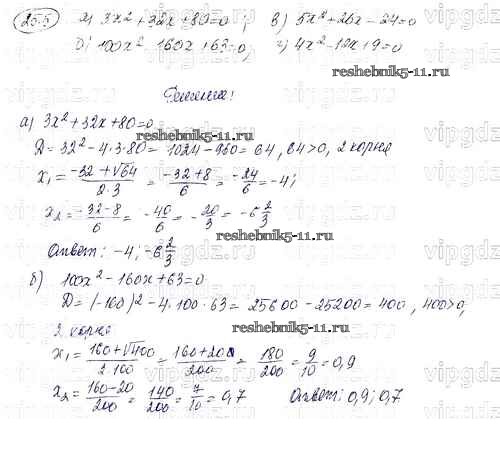 25.5 а) 3x² + 32x + 80 = 0; в) 5x² + 26x − 24 = 0
б) 100x² − 160x + 63 = 0, г) 4x² − 12x + 9 = 0
reshebnik5-11.ru
Решение:
а) 3x² + 32x + 80 = 0
D = 32² − 4·3·80 = 1024 − 960 = 64, 64 > 0, 2 корня
x₁ = (−32 + √64)/(2·3) = (−32 + 8)/6 = −24/6 = −4;
x₂ = (−32 − 8)/6 = −40/6 = −20/3 = −6 2/3
reshebnik5-11.ru
Ответ: −4; −6 2/3
б) 100x² − 160x + 63 = 0
D = (−160)² − 4·100·63 = 25600 − 25200 = 400, 400 > 0,
2 корня
x₁ = (160 + √400)/(2·100) = (160 + 20)/200 = 180/200 = 9/10 = 0,9
x₂ = (160 − 20)/200 = 140/200 = 7/10 = 0,7 Ответ: 0,9; 0,7
reshebnik5-11.ru
vipgdz.ru